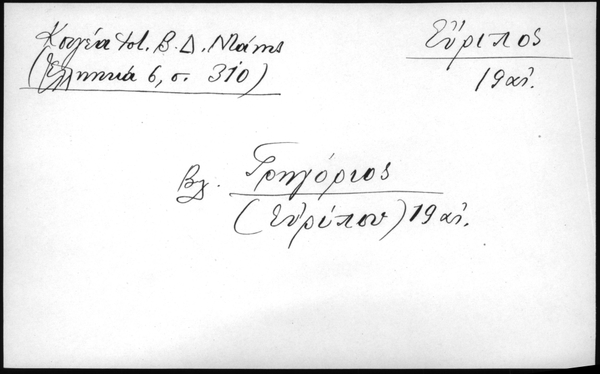 Κουγέα Β. Δ. Μάνης
(Ἑλληνικά 6, σ. 310)
Εὔριπος
19 αἰ.
Βλ. Γρηγόριος
(Εὐρίπου) 19 αἰ.